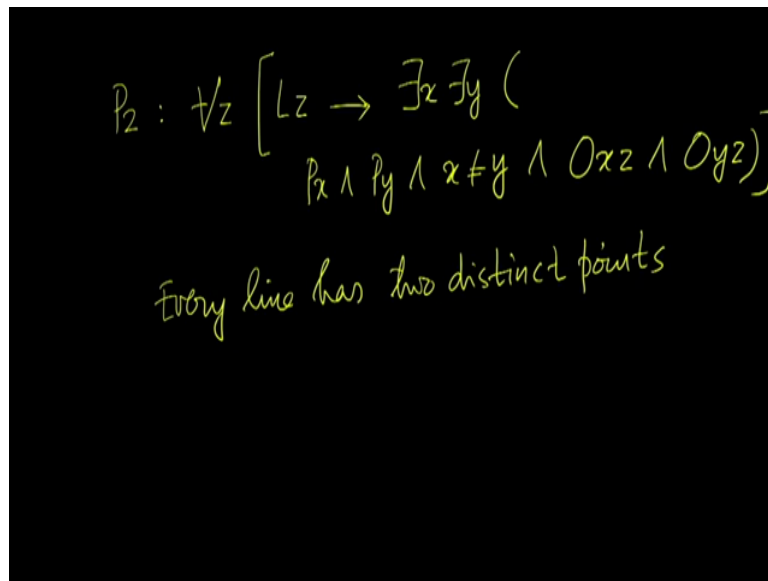 P₂ : ∀z [ Lz → ∃x ∃y (
Px ∧ Py ∧ x ≠ y ∧ Oxz ∧ Oyz)]
Every line has two distinct points